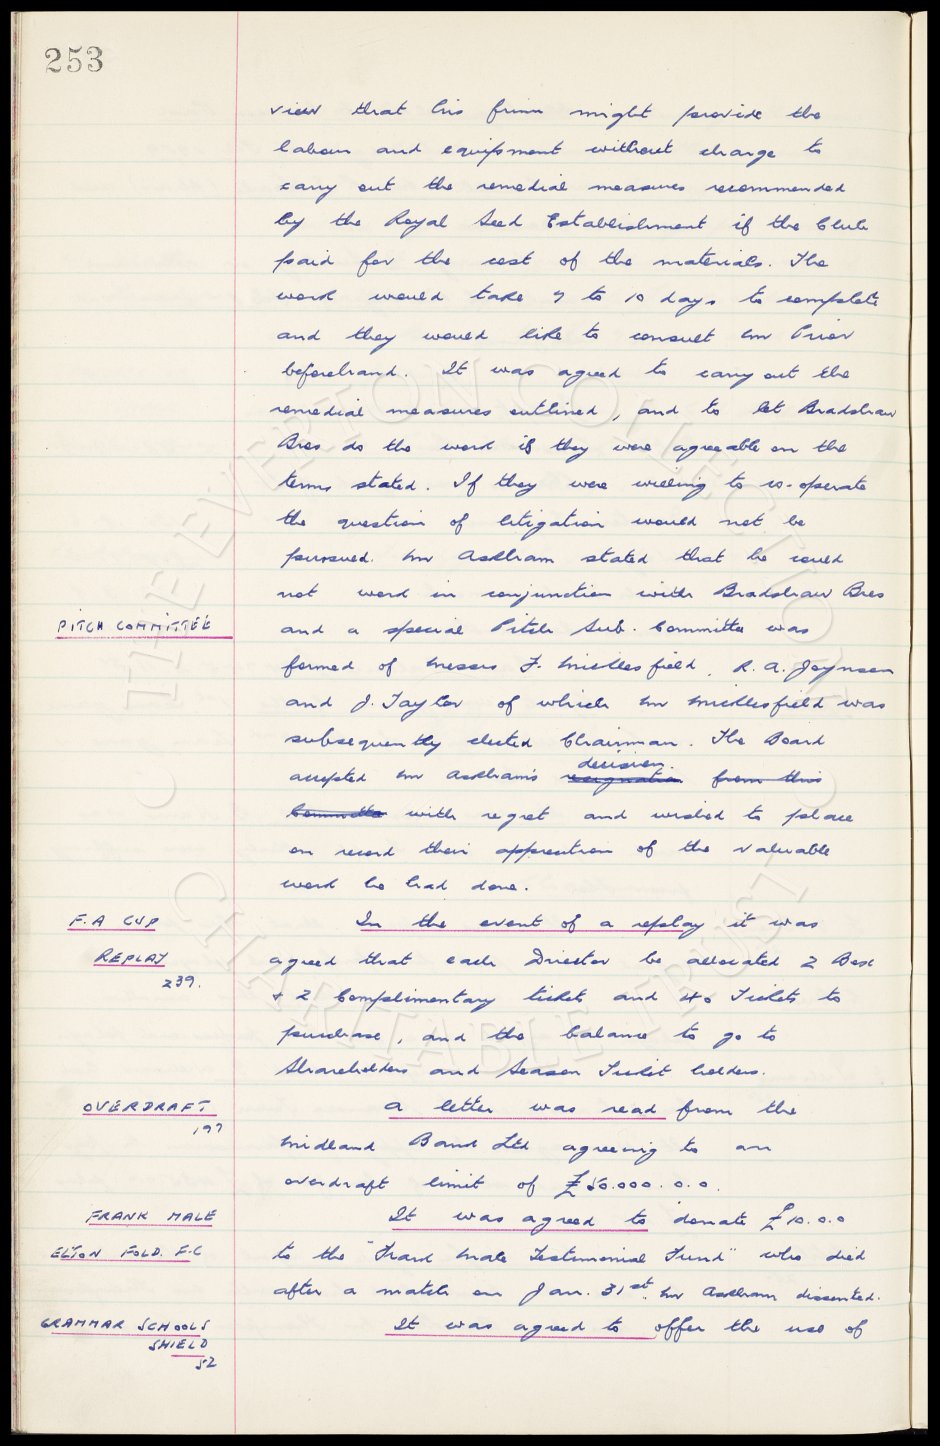 253
view that his firm might provide the
labour and equipment without charge to
carry out the remedial measures recommended
by the Royal Seed Establishment if the Club
paid for the cost of the materials. The
work would take 7 to 10 days to complete
and they would like to consult Mr Prior
beforehand. It was agreed to carry out the
remedial measures outlined, and to let Bradshaw
Bros do the work if they were agreeable on the
terms stated. If they were willing to co-operate
the question of litigation would not be
pursued. Mr Askham stated that he could
not work in conjunction with Bradshaw Bros
PITCH COMMITTEE
and a special Pitch Sub. Committee was
formed of Messrs F. Micklesfield, R. A. Joynson
and J. Taylor of which Mr Micklesfield was
subsequently elected Chairman. The Board
decision.
accepted Mr Askham's resignation from this
Committee with regret and wished to place
on record their appreciation of the valuable
work he had done.
F.A CUP
In the event of a replay it was
REPLAY
agreed that each Director be allocated 2 Box
239.
+ 2 Complimentary tickets and 40 Tickets to
purchase, and the balance to go to
Shareholders and Season Ticket holders.
OVERDRAFT
A letter was read from the
197
Midland Bank Ltd agreeing to an
overdraft limit of £50.000.0.0.
FRANK MALE
It was agreed to donate £10.0.0
ELTON FOLD. F.C
to the "Frank Male Testimonial Fund" who died
after a match on Jan. 31st. Mr Askham dissented.
GRAMMAR SCHOOLS
It was agreed to offer the use of
SHIELD
52
THE EVERTON COLLECTION
CHARITABLE TRUST